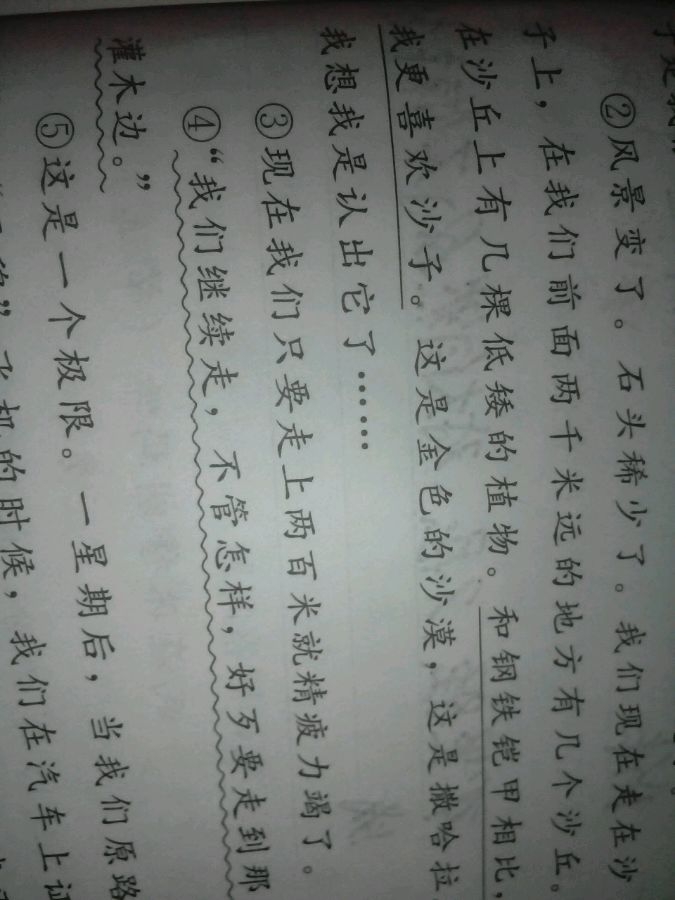 ②风景变了。石头稀少了。我们现在走在沙
子上，在我们前面两千米远的地方有几个沙丘。
在沙丘上有几棵低矮的植物。和钢铁铠甲相比，
我更喜欢沙子。这是金色的沙漠，这是撒哈拉
我想我是认出它了……
③现在我们只要走上两百米就精疲力竭了。
④“我们继续走，不管怎样，好歹要走到那
灌木边。”
⑤这是一个极限。一星期后，当我们原路
飞机的时候，我们在汽车上证